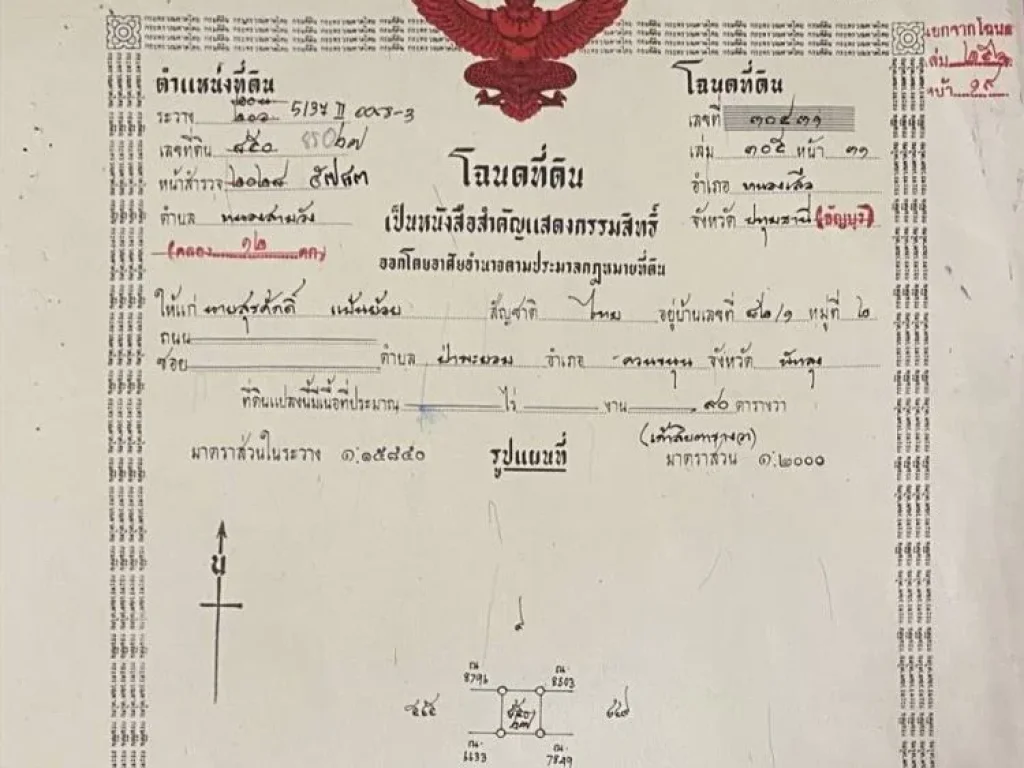 ตำแหน่งที่ดิน
ระวาง 5137 II
เลขที่ดิน ๘๕๐ 850
หน้าสำรวจ
ตำบล หนองสามวัง
(คลอง ๑๒ ตก)
โฉนดที่ดิน
เป็นหนังสือสำคัญแสดงกรรมสิทธิ์
ออกโดยอาศัยอำนาจตามประมวลกฎหมายที่ดิน
โฉนดที่ดิน
เลขที่ ๓๐๕๓๑
เล่ม ๓๐๕ หน้า ๓๑
อำเภอ หนองเสือ
จังหวัด ปทุมธานี (ธัญบุรี)
แยกจากโฉนด
เล่ม
หน้า ๑๙
ให้แก่ นายสุรศักดิ์ แป้นย้อย สัญชาติ ไทย อยู่บ้านเลขที่ ๘๒/๑ หมู่ที่ ๒
ถนน
ซอย ตำบล ป่าพะยอม อำเภอ ควนขนุน จังหวัด พัทลุง
ที่ดินแปลงนี้มีเนื้อที่ประมาณ ไร่ งาน ๙๐ ตารางวา
(เก้าสิบตารางวา)
มาตราส่วนในระวาง ๑:๑๕๘๔๐ รูปแผนที่ มาตราส่วน ๑:๒๐๐๐
น
ณ. 8796 ณ. 8503
ณ. 6133 ณ. 7849